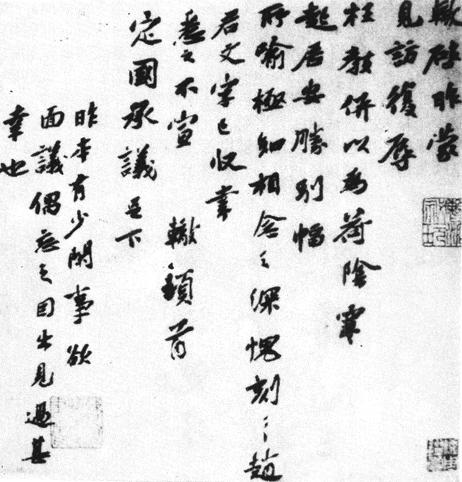 轍啟昨蒙
見訪復辱
枉教併以為荷陰寒
起居安勝別幅
所喻極知相念之深愧刻〻趙
君文字已收書
悉之不宣 轍頓首
定國承議 足下
昨本有少閑事欲
面議偶忘之因出見過甚
幸也